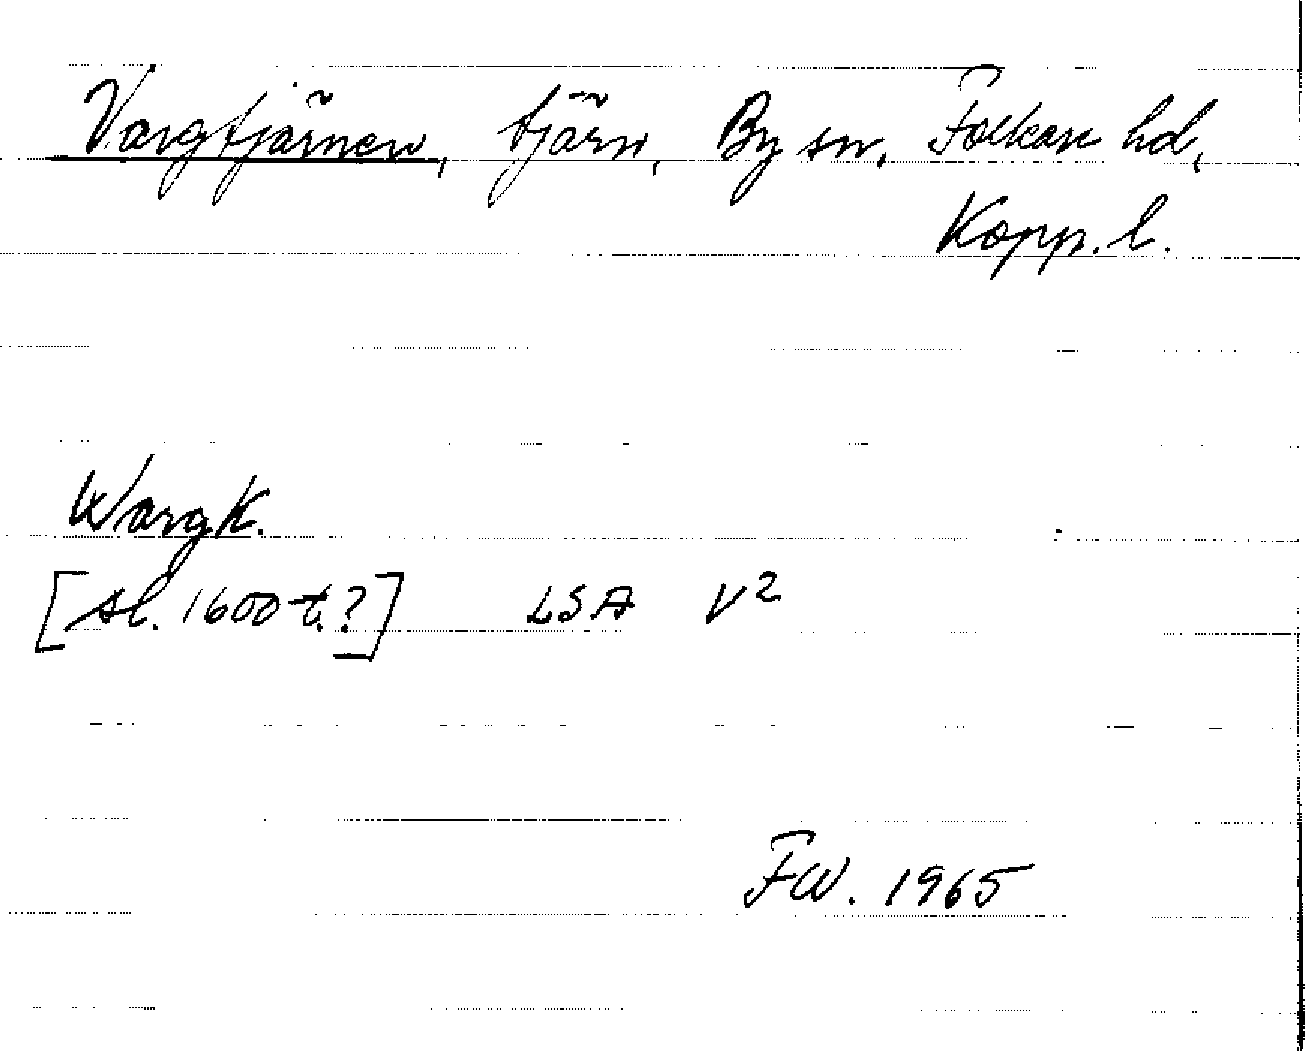 Vargtjärnen, tjärn, By sn, Folkare hd,
Kopp. l.
Warg K.
[sl. 1600 t.?] LSA V²
FW. 1965